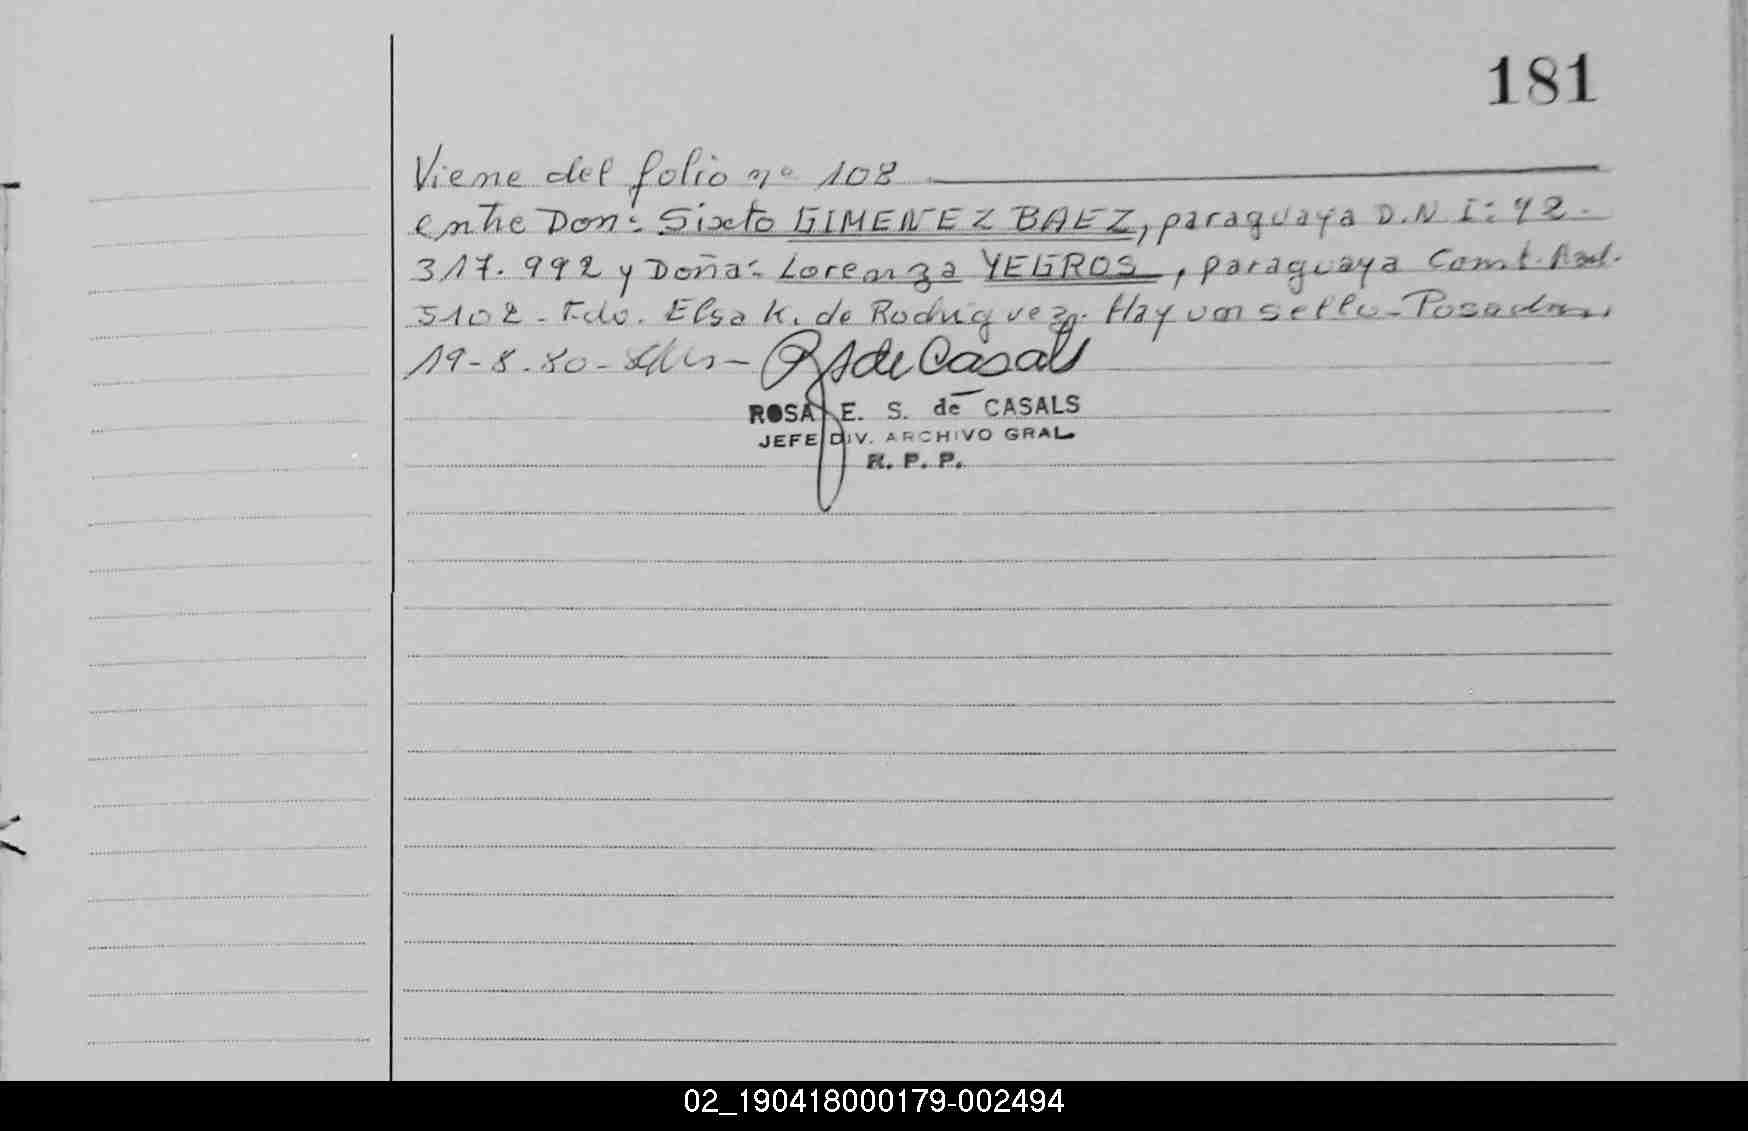 181
Viene del folio nº 108
entre Don: Sixto GIMENEZ BAEZ, paraguaya D.N I: 92.
317.992 y Doña: Lorenza YEGROS, paraguaya Comt. Rad.
5102 - Fdo. Elsa K. de Rodriguez. Hay un sello - Posadas,
19-8-80 -
RSdeCasals
ROSA E. S. de CASALS
JEFE DIV. ARCHIVO GRAL.
R. P. P.
02_190418000179-002494